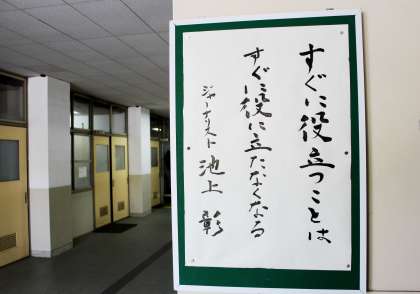 すぐに役立つことは
すぐに役に立たなくなる
ジャーナリスト 池上 彰